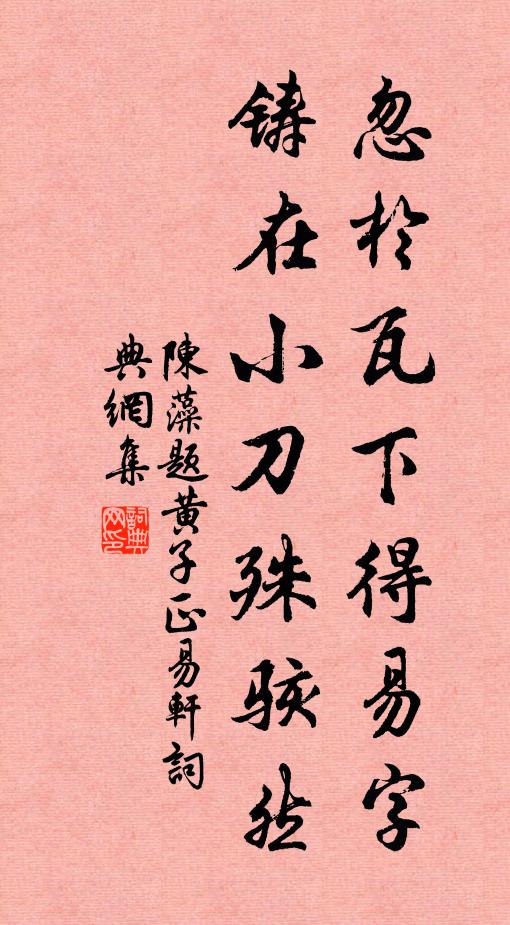 忽於瓦下得易字
鑄在小刀殊駭然
陳藻題黄子正易軒詞
典網集
詞典
网印